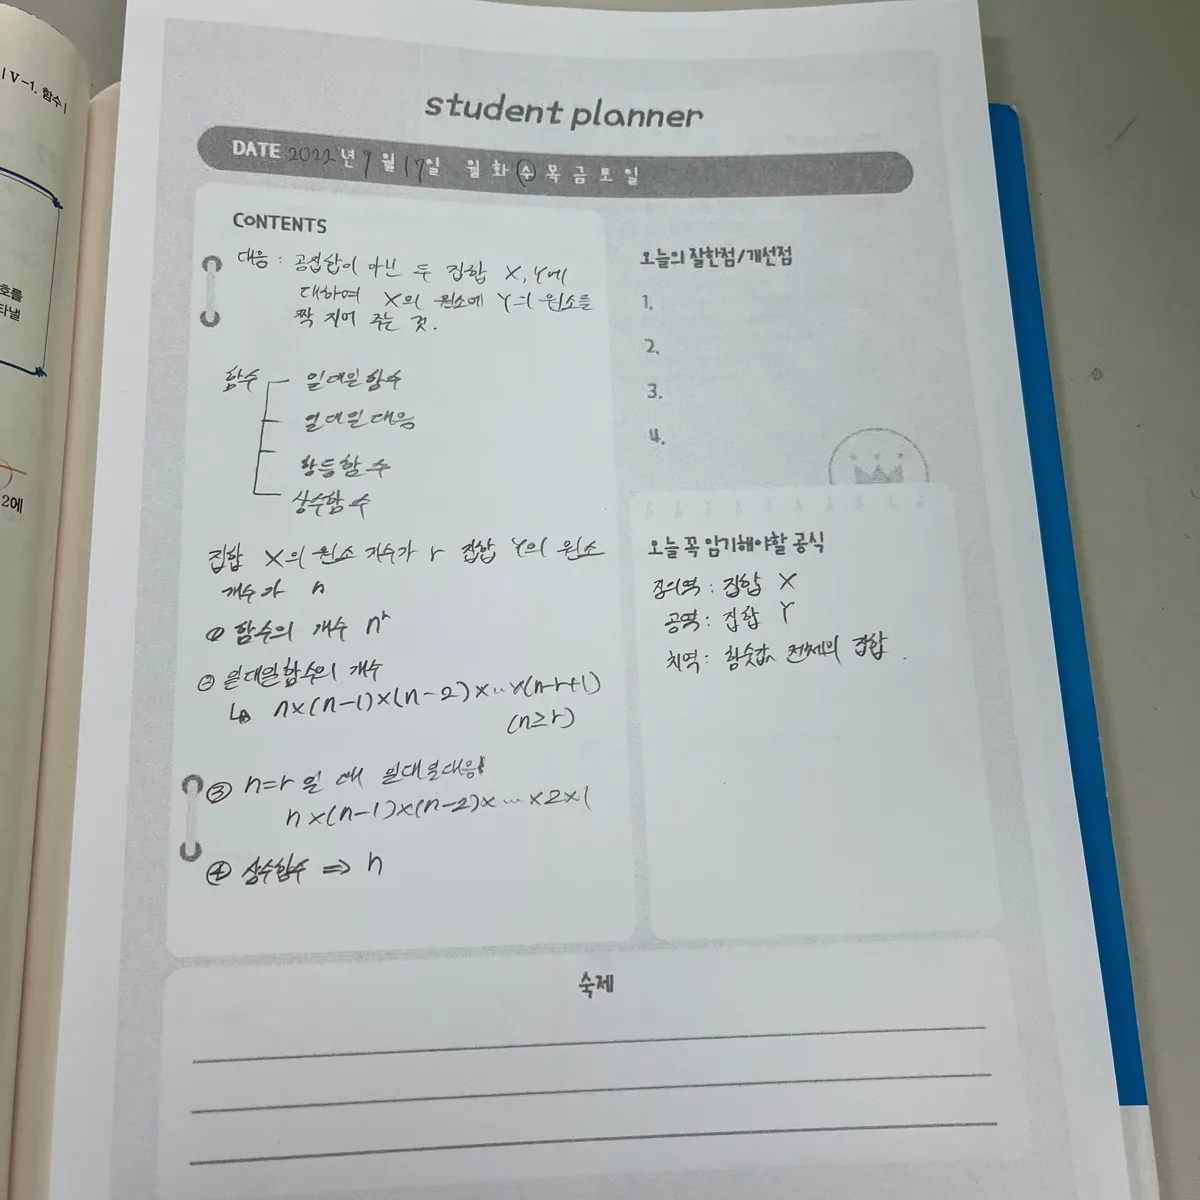 | V-1. 함수 |
호를
타낼
2에
student planner
DATE 2022년 7월 17일 월 화 수 목 금 토 일
CONTENTS
대응 : 공집합이 아닌 두 집합 X, Y에
대하여 X의 원소에 Y의 원소를
짝 지어 주는 것.
함수
일대일함수
일대일대응
항등함수
상수함수
집합 X의 원소 개수가 r 집합 Y의 원소
개수가 n
① 함수의 개수 nʳ
② 일대일함수의 개수
↳ n×(n-1)×(n-2)×…×(n-r+1)
(n≥r)
③ n=r일 때 일대일대응
n×(n-1)×(n-2)×…×2×1
④ 상수함수 => n
오늘의 잘한점/개선점
1.
2.
3.
4.
오늘 꼭 암기해야할 공식
정의역 : 집합 X
공역 : 집합 Y
치역 : 함숫값 전체의 집합.
숙제